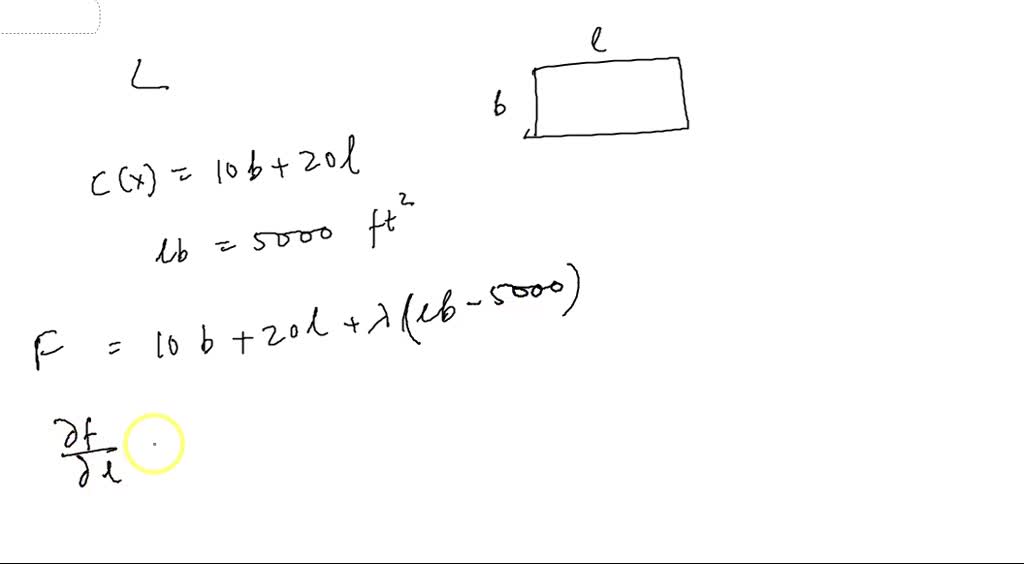 l
b
L
C(x) = 10b + 20l
lb = 5000 ft²
F = 10b + 20l + λ(lb - 5000)
∂f/∂l